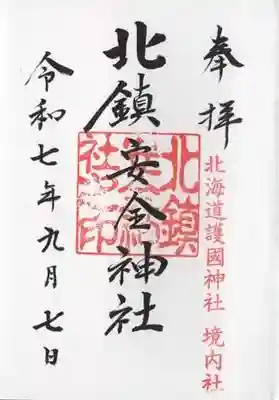 奉拝
北海道護國神社 境内社
北鎮安全神社
令和七年九月七日